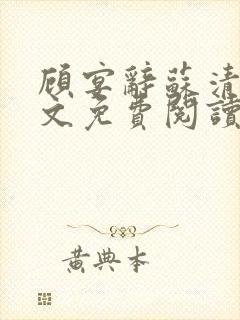 顾宴辭蘇清
文免費閱讀
黃典本